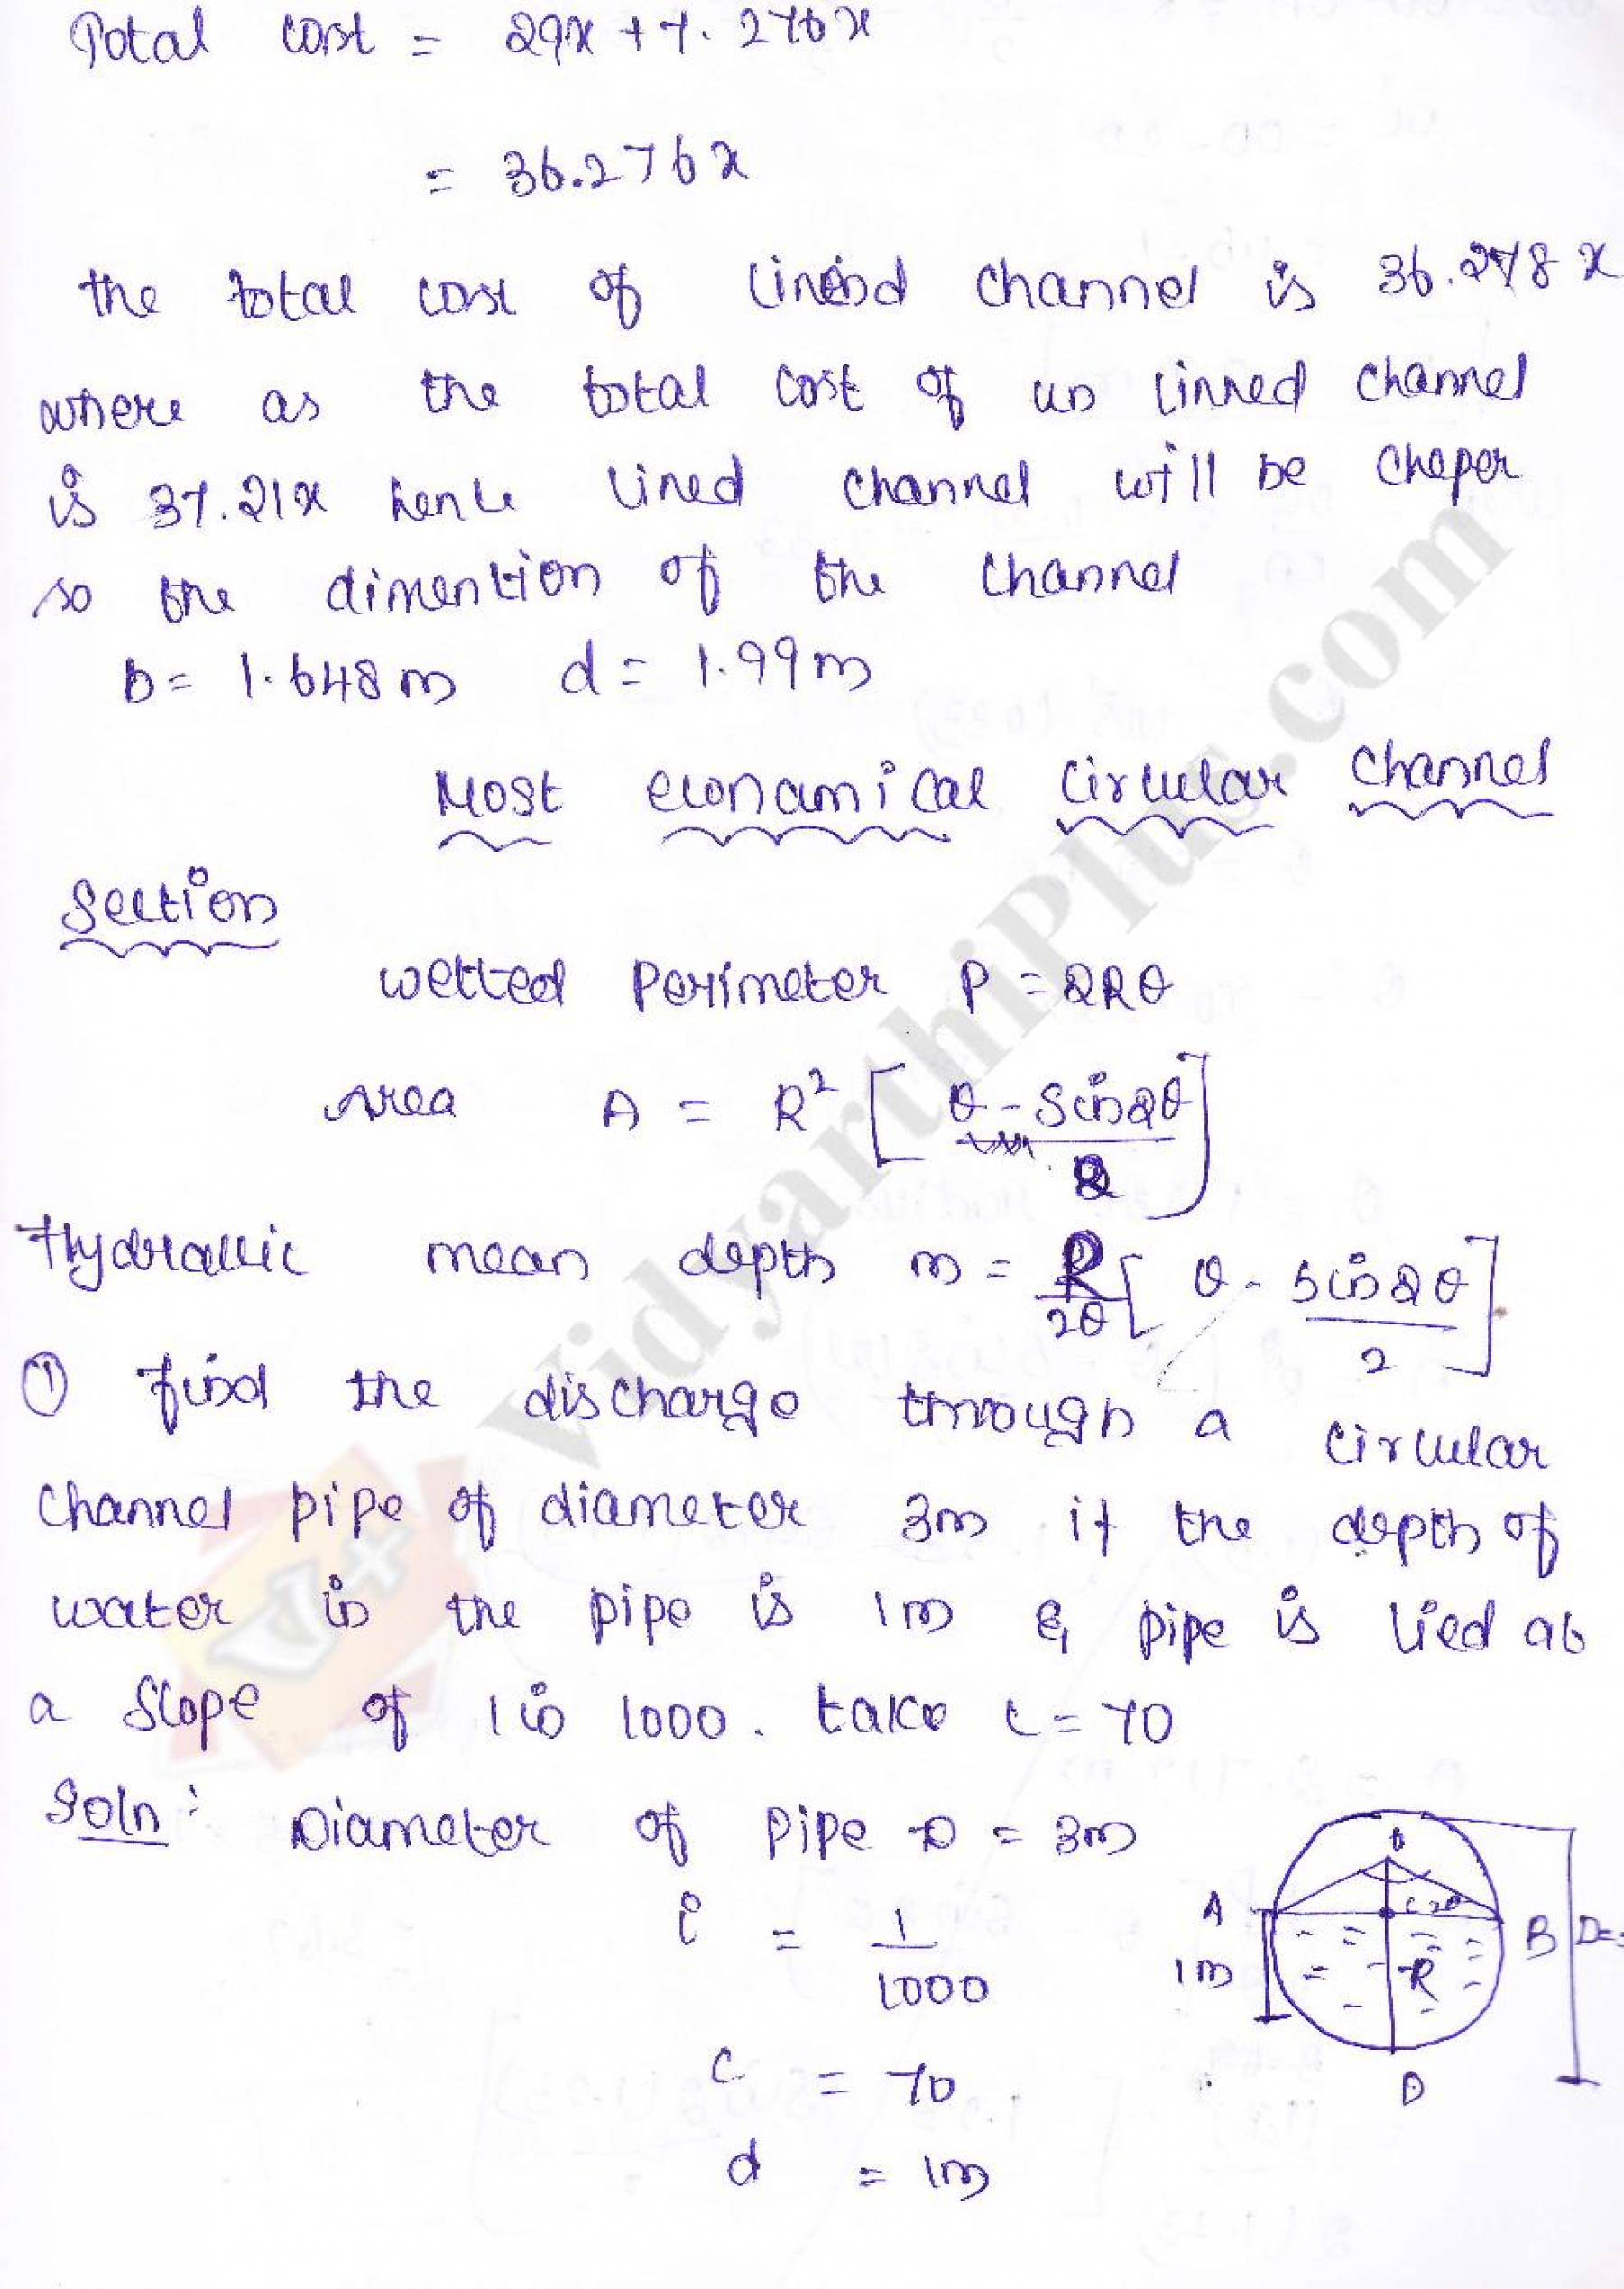 Total cost = 29x + 7.276x
= 36.276x
the total cost of lined channel is 36.278x
where as the total cost of un linned channel
is 37.21x hence lined channel will be cheper
so the dimention of the channel
b = 1.648m d = 1.99m
Most econamical circular channel
Section
wetted Perimeter P = 2Rθ
Area A = R² [θ - sin2θ / 2]
Hydraulic mean depth m = R/2θ [θ - sin2θ/2]
① find the discharge through a circular
channel pipe of diameter 3m if the depth of
water in the pipe is 1m & pipe is lied at
a slope of 1 in 1000. take c = 70
Soln: Diameter of pipe D = 3m
i = 1/1000
c = 70
d = 1m
A
1m
C 2θ
R
B
D=3
D
VidyarthiPlus.com
V+